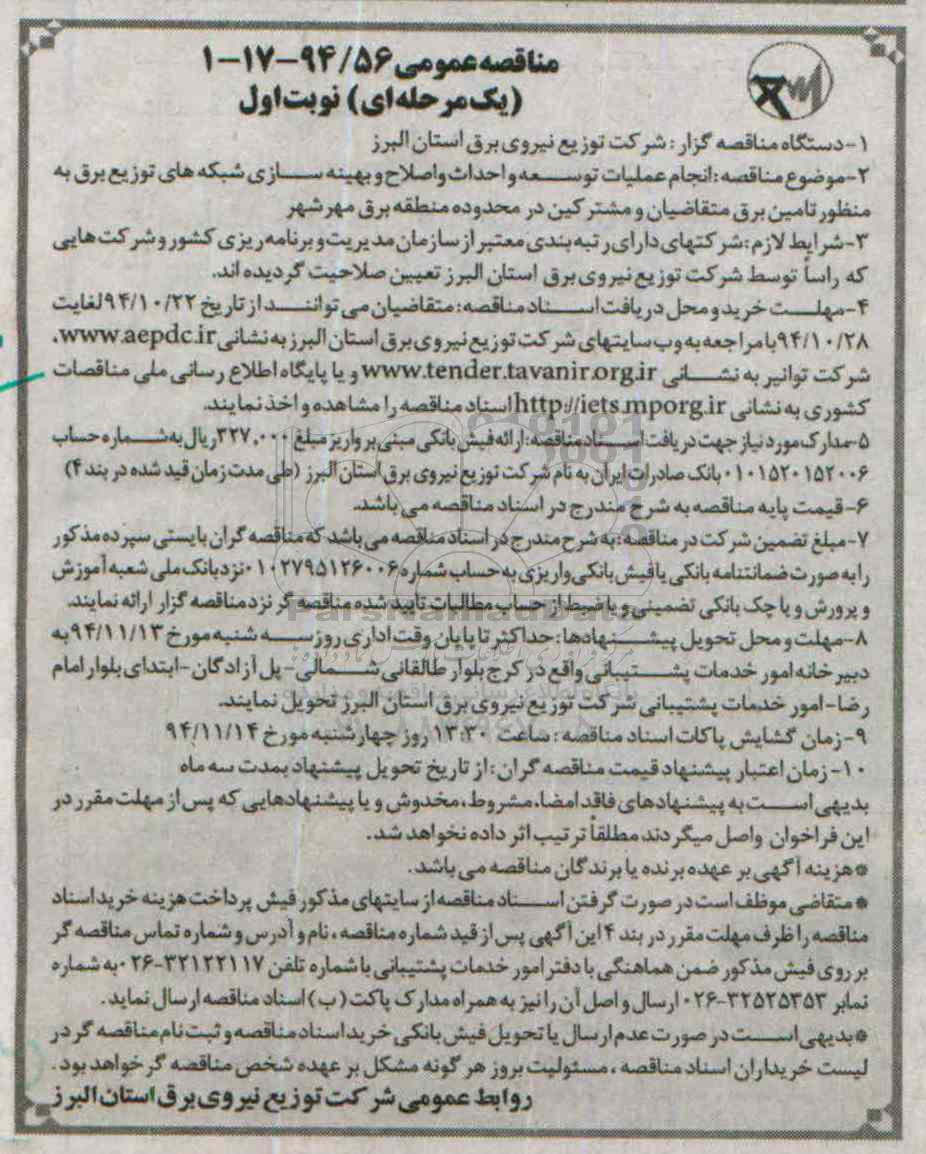 مناقصه عمومی ۹۴/۵۶-۱۷-۱
(یک مرحله ای) نوبت اول
۱-دستگاه مناقصه گزار: شرکت توزیع نیروی برق استان البرز
۲-موضوع مناقصه: انجام عملیات توسعه و احداث واصلاح و بهینه سازی شبکه های توزیع برق به
منظور تامین برق متقاضیان و مشترکین در محدوده منطقه برق مهرشهر
۳-شرایط لازم: شرکتهای دارای رتبه بندی معتبر از سازمان مدیریت و برنامه ریزی کشور و شرکت هایی
که راساً توسط شرکت توزیع نیروی برق استان البرز تعیین صلاحیت گردیده اند.
۴-مهلت خرید و محل دریافت اسناد مناقصه: متقاضیان می توانند از تاریخ ۹۴/۱۰/۲۲ لغایت
۹۴/۱۰/۲۸ با مراجعه به وب سایتهای شرکت توزیع نیروی برق استان البرز به نشانی www.aepdc.ir،
شرکت توانیر به نشانی www.tender.tavanir.org.ir و یا پایگاه اطلاع رسانی ملی مناقصات
کشوری به نشانی http://iets.mporg.ir اسناد مناقصه را مشاهده و اخذ نمایند.
۵-مدارک مورد نیاز جهت دریافت اسناد مناقصه: ارائه فیش بانکی مبنی بر واریز مبلغ ۳۲۷,۰۰۰ ریال به شماره حساب
۰۱۰۱۵۲۰۱۵۲۰۰۶ بانک صادرات ایران به نام شرکت توزیع نیروی برق استان البرز (طی مدت زمان قید شده در بند ۴)
۶-قیمت پایه مناقصه به شرح مندرج در اسناد مناقصه می باشد.
۷-مبلغ تضمین شرکت در مناقصه: به شرح مندرج در اسناد مناقصه می باشد که مناقصه گران بایستی سپرده مذکور
را به صورت ضمانتنامه بانکی یا فیش بانکی واریزی به حساب شماره ۰۱۰۲۷۹۵۱۲۶۰۰۶ نزد بانک ملی شعبه آموزش
و پرورش و یا چک بانکی تضمینی و یا ضبط از حساب مطالبات تایید شده مناقصه گر نزد مناقصه گزار ارائه نمایند.
۸-مهلت و محل تحویل پیشنهادها: حداکثر تا پایان وقت اداری روز سه شنبه مورخ ۹۴/۱۱/۱۳ به
دبیرخانه امور خدمات پشتیبانی واقع در کرج بلوار طالقانی شمالی- پل آزادگان-ابتدای بلوار امام
رضا-امور خدمات پشتیبانی شرکت توزیع نیروی برق استان البرز تحویل نمایند.
۹-زمان گشایش پاکات اسناد مناقصه: ساعت ۱۳:۳۰ روز چهارشنبه مورخ ۹۴/۱۱/۱۴
۱۰-زمان اعتبار پیشنهاد قیمت مناقصه گران: از تاریخ تحویل پیشنهاد بمدت سه ماه
بدیهی است به پیشنهادهای فاقد امضا، مشروط، مخدوش و یا پیشنهادهایی که پس از مهلت مقرر در
این فراخوان واصل میگردند مطلقاً ترتیب اثر داده نخواهد شد.
*هزینه آگهی بر عهده برنده یا برندگان مناقصه می باشد.
* متقاضی موظف است در صورت گرفتن اسناد مناقصه از سایتهای مذکور فیش پرداخت هزینه خرید اسناد
مناقصه را ظرف مهلت مقرر در بند ۴ این آگهی پس از قید شماره مناقصه، نام و آدرس و شماره تماس مناقصه گر
بر روی فیش مذکور ضمن هماهنگی با دفتر امور خدمات پشتیبانی با شماره تلفن ۳۲۱۲۲۱۱۷-۰۲۶ به شماره
نمابر ۳۲۵۲۵۳۵۳-۰۲۶ ارسال و اصل آن را نیز به همراه مدارک پاکت (ب) اسناد مناقصه ارسال نماید.
*بدیهی است در صورت عدم ارسال یا تحویل فیش بانکی خرید اسناد مناقصه و ثبت نام مناقصه گر در
لیست خریداران اسناد مناقصه، مسئولیت بروز هر گونه مشکل بر عهده شخص مناقصه گر خواهد بود.
روابط عمومی شرکت توزیع نیروی برق استان البرز
ParsNamadData